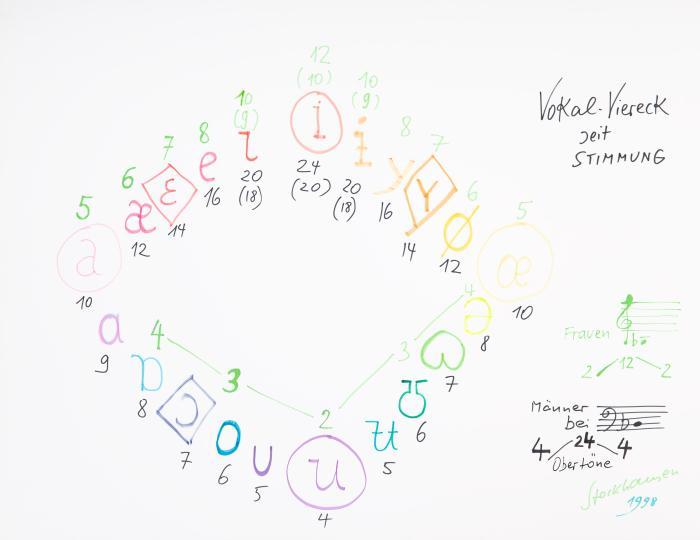 12
(10)
10
(9)
i
i
10
(9)
ɩ
8
e
7
ɛ
6
æ
5
a
8
y
7
Y
6
ø
5
œ
24
(20)
20
(18)
20
(18)
16
16
14
14
12
12
10
10
Vokal-Viereck
seit
STIMMUNG
a
9
4
ə
8
ɒ
8
4
3
3
2
7
ɔ
7
6
o
6
ʉ
5
u
5
u
4
Frauen
2 12 2
Männer
bei
4 24 4
Obertöne
Stockhausen
1998